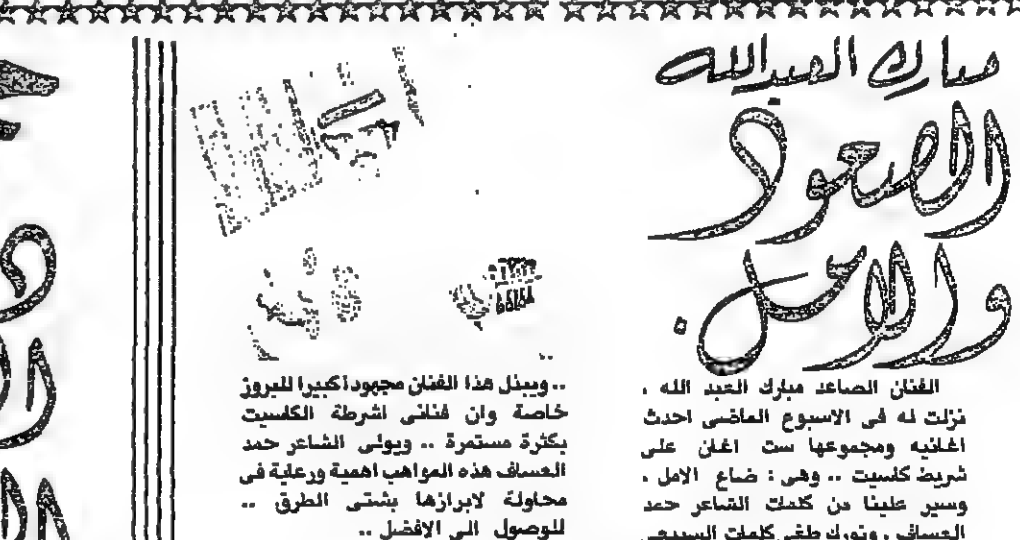 مبارك العبدالله
الصعود
والامل
الفنان الصاعد مبارك العبد الله ،
نزلت له فى الاسبوع الماضى احدث
اغانيه ومجموعها ست اغان على
شريط كاسيت .. وهى : ضاع الامل ،
وسير علينا من كلمات الشاعر حمد
العساف ، ونورك طغى كلمات السبيعى
.. ويبذل هذا الفنان مجهودا كبيرا للبروز
خاصة وان فنانى اشرطة الكاسيت
بكثرة مستمرة .. ويولى الشاعر حمد
العساف هذه المواهب اهمية ورعاية فى
محاولة لابرازها بشتى الطرق ..
للوصول الى الافضل ..